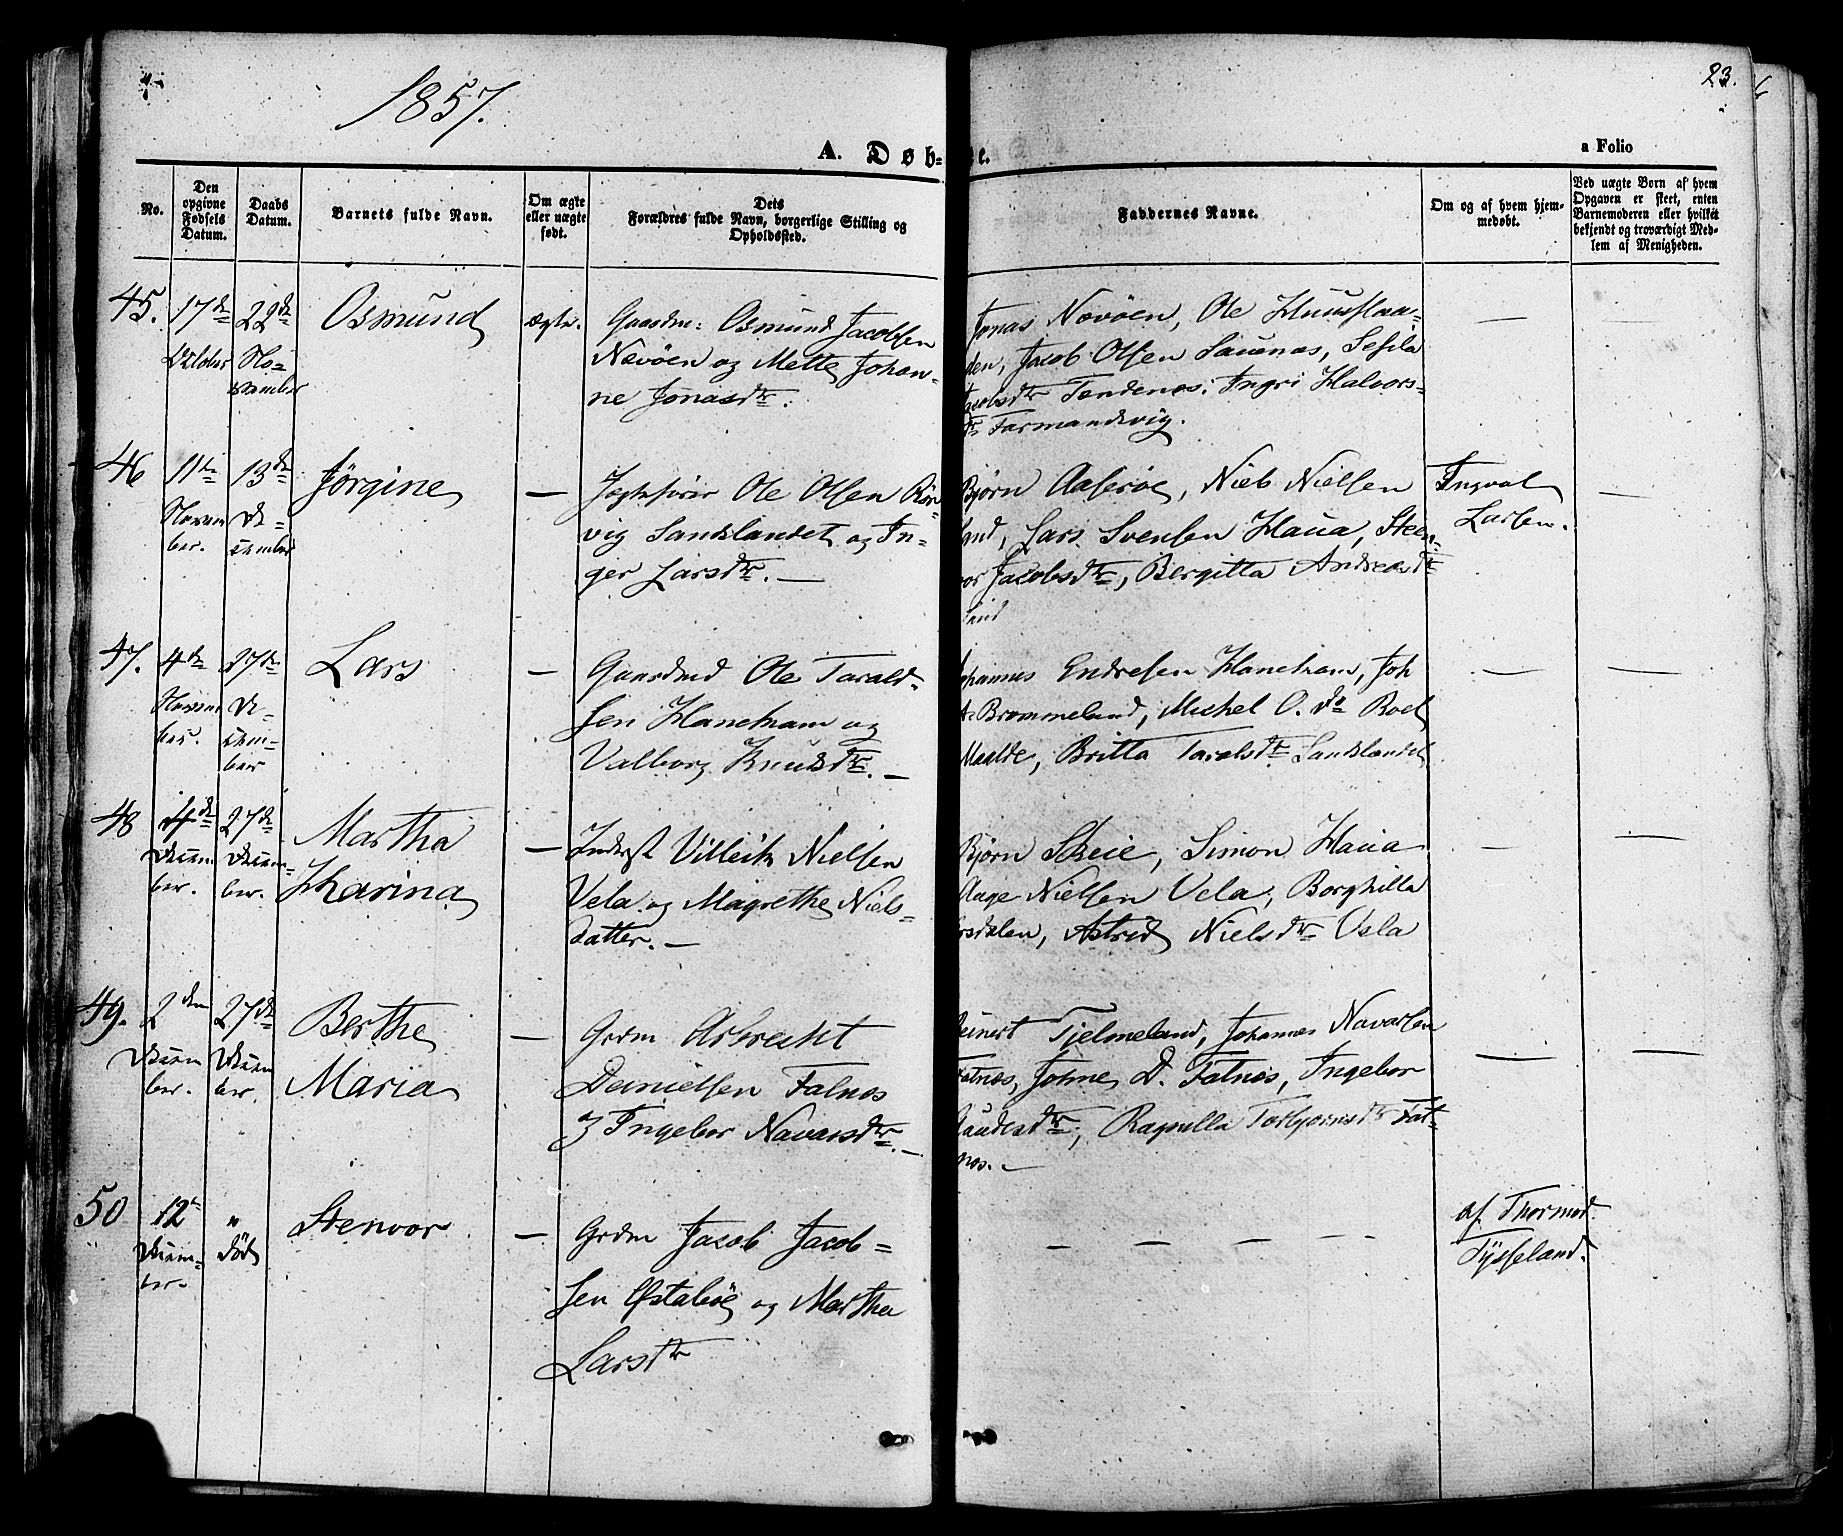 1857.
23.
A. Døb-
te.
a Folio
No.
Den opgivne Fødsels Datum.
Daabs Datum.
Barnets fulde Navn.
Om ægte eller uægte født.
Dets Forældres fulde Navn, borgerlige Stilling og Opholdssted.
Faddernes Navne.
Om og af hvem hjem-
medøbt.
Ved uægte Børn af hvem
Opgaven er skeet, enten
Barnemoderen eller hvilket
bekjendt og troværdigt Med-
lem af Menigheden.
45.
17de
October
22de
No-
vember
Osmund
ægte.
Gaardm: Osmund Jacobsen
Nævøen og Mette Johan-
ne Jonasdtr.
Jonas Nævøen, Ole
den, Jacob Olsen Sauenas, Sesila
Jacobsdtr Tendenes, Ingri Halvors-
dtr Tarmandsvig.
—
46
11te
Novem
ber.
13de
De-
cember
Jørgine
—
Jægtefører Ole Olsen Rør-
vig Sandslandet og In-
ger Larsdtr. —
Bjørn Aaserøe, Niels Nielsen
Lars Svensen Haua, Steen-
vor Jacobsdtr, Bergitta Andreasdtr
land
Ingval
Larsen.
—
47.
4de
Novem
ber.
27de
De-
cem-
ber
Lars
—
Gaardmd Ole Tarald-
sen Haneham og
Valborg Knudsdtr. —
Johannes Endresen Haneham, Joh
A. Brommeland, Michel O. do Roel
Maalde, Britta Taralsdtr Sandslandet
—
—
48
4de
Decem
ber.
27de
Decem-
ber.
Martha
Karina
—
Inderst Villeik Nielsen
Vela og Magrethe Niels-
datter. —
Bjørn Skeie, Simon Haua
Aage Nielsen Vela, Borghilla
rsdalen, Astrid Nielsdtr Vela
—
—
49.
2den
Decem
ber.
27de
Decem
ber.
Berthe
Maria
—
Grdm Abrecht
Danielsen Fatnes
& Ingebor Navarsdtr. —
Reinert Tjelmeland, Johannes Navarsen
Fatnes, Johne D. Fatnes, Ingebor
Gaudesdtr, Ragnilla Torbjørnsdtr Fat-
nes. —
—
—
50
12te
Decem-
ber.
"
død
Stenvor
—
Grdm Jacob Jacob-
sen Østabøe og Martha
Larsdtr
— — — —
af Thormod
Tysseland.